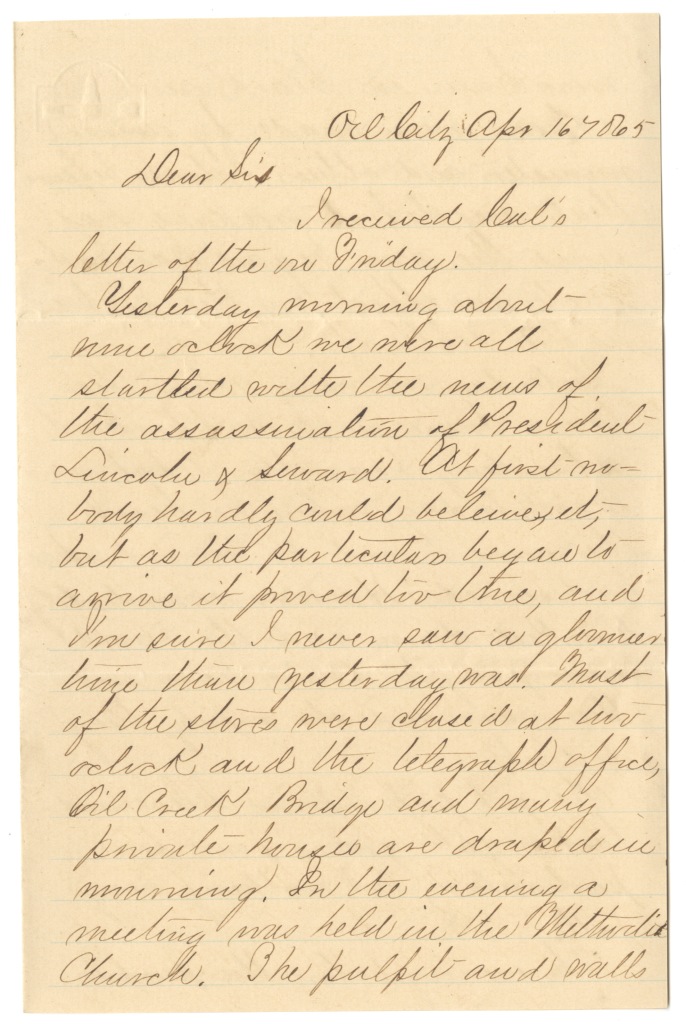 Oil City Apr 16 1865
Dear Sis
I received Cal's
letter of the on Friday.
Yesterday morning about
nine oclock we were all
startled with the news of
the assassination of President
Lincoln & Seward. At first no-
body hardly could beleive it,
but as the particulars began to
arrive it proved too true, and
I'm sure I never saw a gloomier
time than yesterday was. Most
of the stores were closed at two
oclock and the telegraph office,
Oil Creek Bridge and many
private houses are draped in
mourning. In the evening a
meeting was held in the Methodist
Church. The pulpit and walls